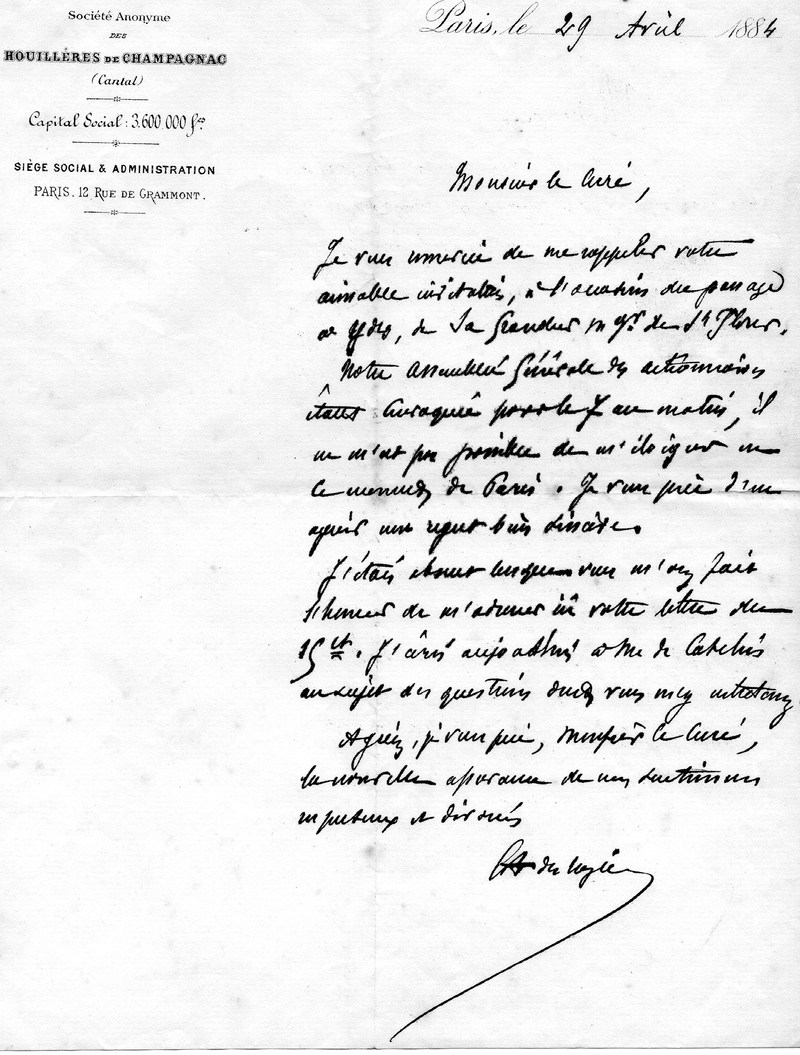 Société Anonyme
DES
HOUILLÈRES DE CHAMPAGNAC
(Cantal)
Capital Social : 3.600.000 fcs.
SIÈGE SOCIAL & ADMINISTRATION
PARIS. 12 RUE DE GRAMMONT.
Paris, le 29 Avril 1884
Monsieur le Curé,
Je vous remercie de me rappeler votre
aimable invitation, à l'occasion du passage
à Ydes, de Sa Grandeur Mgr de St Flour.
Notre Assemblée Générale des actionnaires
étant convoquée pour le 7 au matin, il
ne m'est pas possible de m'éloigner en
ce moment de Paris. Je vous prie d'en
agréer mon regret bien sincère.
J'étais absent lorsque vous m'avez fait
l'honneur de m'adresser ici votre lettre du
15 ct. J'écris aujourd'hui à Mr de
au sujet des questions dont vous m'y entretenez
Agréez, je vous prie, Monsieur le Curé,
la nouvelle assurance de mes sentiments
respectueux et dévoués